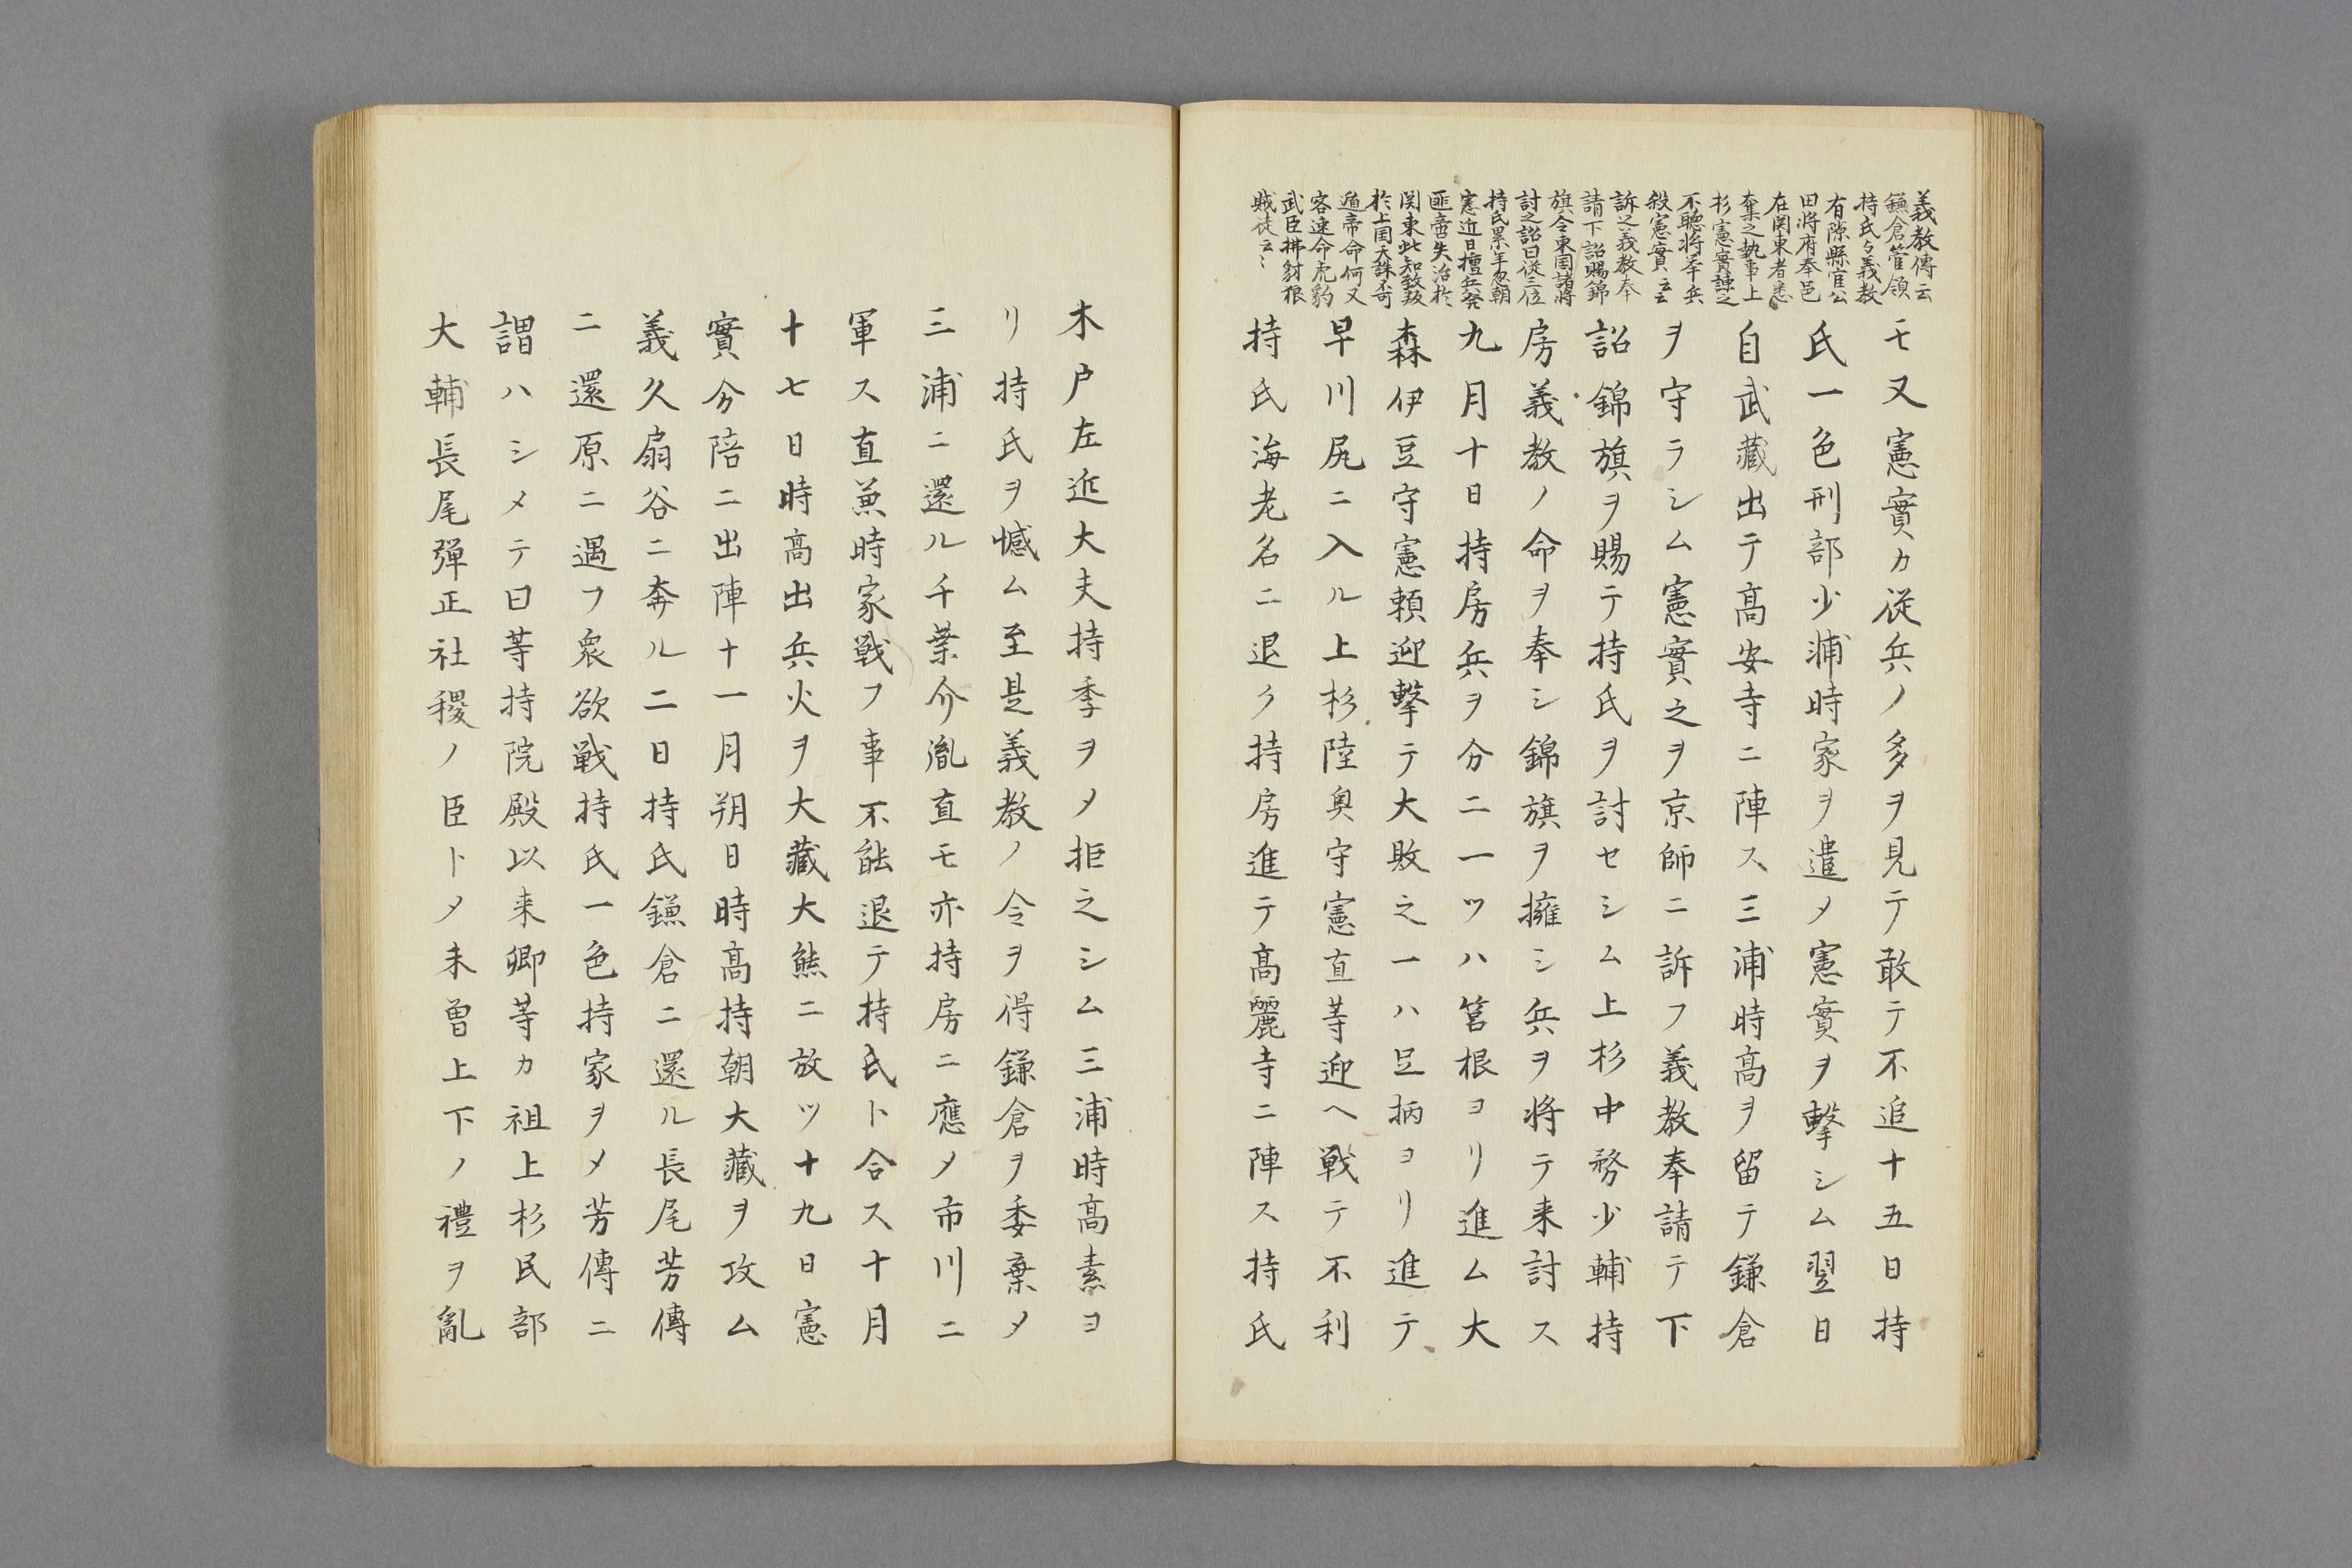 義教傳云
鎌倉管領
持氏与義教
有隙縣官公
田将府奉邑
在関東者悉
奪之執事上
杉憲實諌之
不聴将举兵
殺憲實云云
訴之義教奉
請下詔賜錦
旗令東国諸将
討之詔曰従三位
持氏累年忽朝
憲近日擅兵発
匪啻失治於
関東此知致叛
於上国天誅不可
遁帝命何又
容速命虎豹
武臣拂豺狼
賊徒云〻
モ又憲實カ従兵ノ多ヲ見テ敢テ不追十五日持
氏一色刑部少浦時家ヲ遣メ憲實ヲ擊シム翌日
自武藏出テ高安寺ニ陣ス三浦時高ヲ留テ鎌倉
ヲ守ラシム憲實之ヲ京師ニ訴フ義教奉請テ下
詔錦旗ヲ賜テ持氏ヲ討セシム上杉中務少輔持
房義教ノ命ヲ奉シ錦旗ヲ擁シ兵ヲ将テ来討ス
九月十日持房兵ヲ分ニ一ツハ筥根ヨリ進ム大
森伊豆守憲頼迎擊テ大敗之一ハ足柄ヨリ進テ
早川尻ニ入ル上杉陸奥守憲直等迎ヘ戦テ不利
持氏海老名ニ退ク持房進テ高麗寺ニ陣ス持氏
木戸左近大夫持季ヲメ拒之シム三浦時高素ヨ
リ持氏ヲ憾ム至是義教ノ令ヲ得鎌倉ヲ委棄メ
三浦ニ還ル千葉介胤直モ亦持房ニ應メ市川ニ
軍ス直兼時家戦フ事不能退テ持氏ト合ス十月
十七日時高出兵火ヲ大藏大熊ニ放ツ十九日憲
實分陪ニ出陣十一月朔日時高持朝大藏ヲ攻ム
義久扇谷ニ奔ル二日持氏鎌倉ニ還ル長尾芳傳
ニ還原ニ遇フ衆欲戦持氏一色持家ヲメ芳傳ニ
謂ハシメテ曰等持院殿以来卿等カ祖上杉民部
大輔長尾弾正社稷ノ臣トメ未曽上下ノ禮ヲ亂